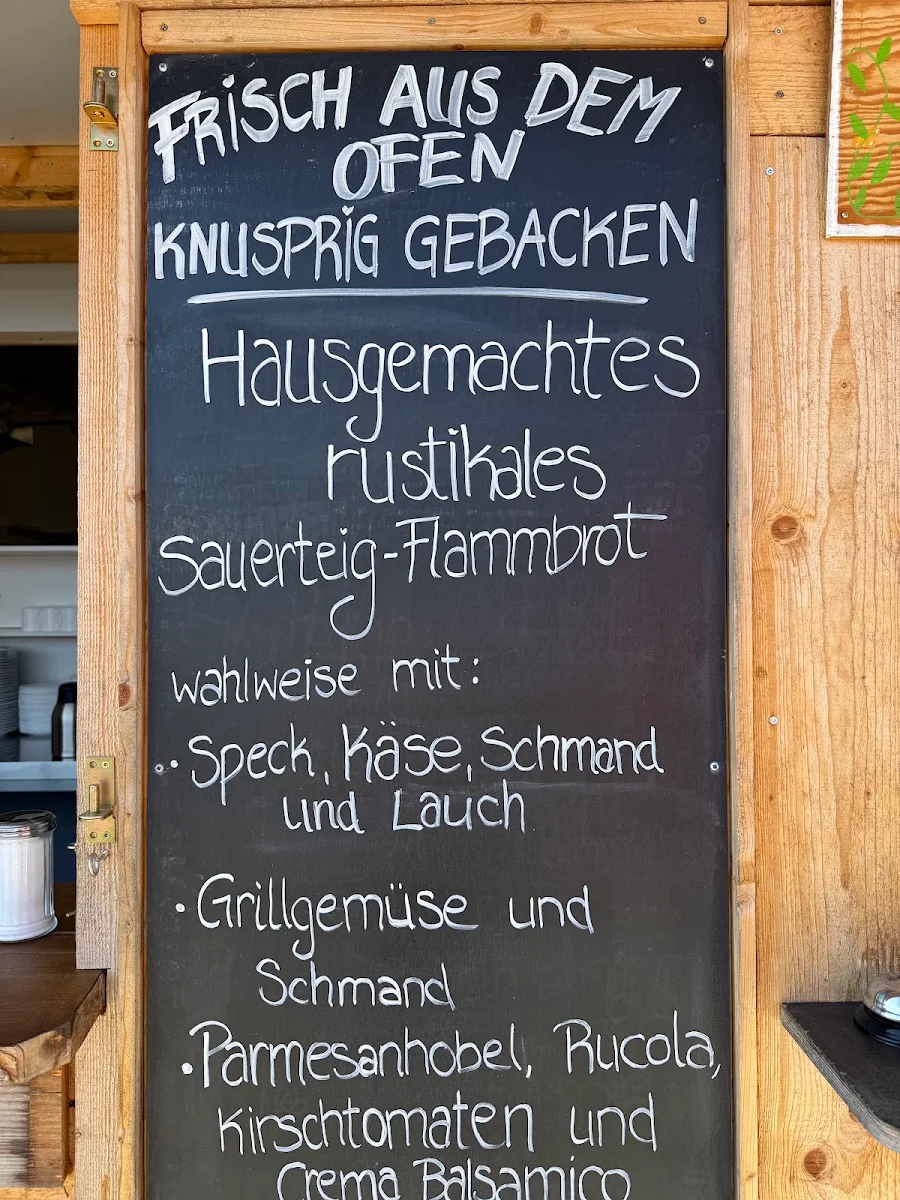 FRISCH AUS DEM
OFEN
KNUSPRIG GEBACKEN
Hausgemachtes
rustikales
Sauerteig-Flammbrot
wahlweise mit:
• Speck, Käse, Schmand
und Lauch
• Grillgemüse und
Schmand
• Parmesanhobel, Rucola,
Kirschtomaten und
Crema Balsamico